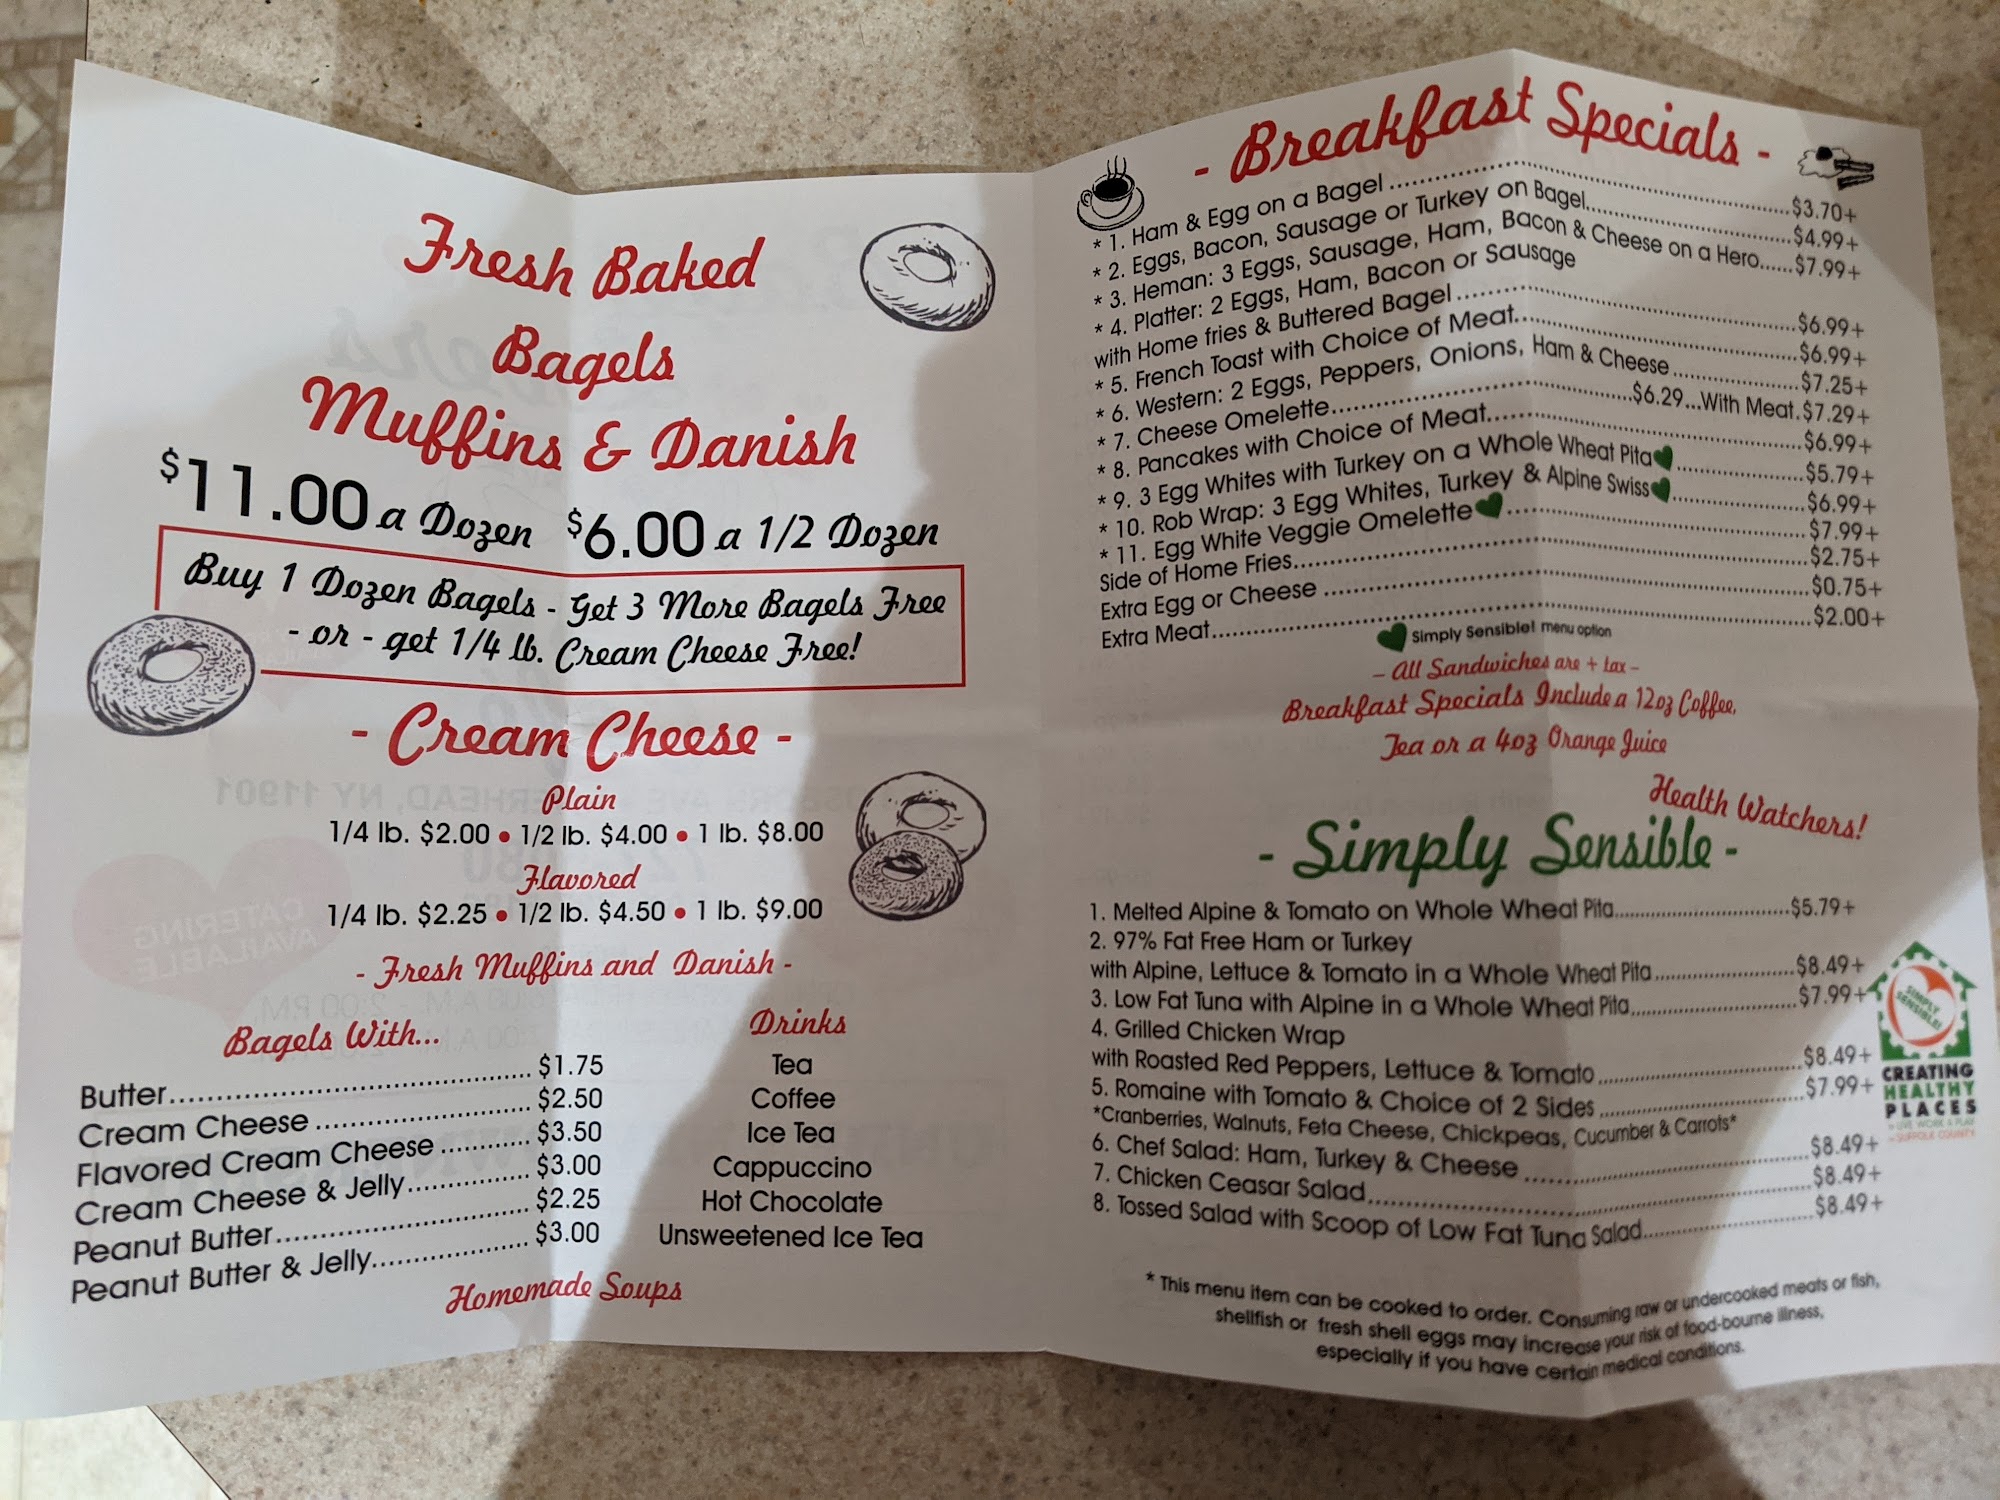 Fresh Baked
Bagels
Muffins & Danish
$11.00 a Dozen $6.00 a 1/2 Dozen
Buy 1 Dozen Bagels - Get 3 More Bagels Free
- or - get 1/4 lb. Cream Cheese Free!
- Cream Cheese -
Plain
1/4 lb. $2.00 • 1/2 lb. $4.00 • 1 lb. $8.00
Flavored
1/4 lb. $2.25 • 1/2 lb. $4.50 • 1 lb. $9.00
- Fresh Muffins and Danish -
Bagels With...
Butter.......... $1.75
Cream Cheese .......... $2.50
Flavored Cream Cheese .......... $3.50
Cream Cheese & Jelly.......... $3.00
Peanut Butter.......... $2.25
Peanut Butter & Jelly.......... $3.00
Drinks
Tea
Coffee
Ice Tea
Cappuccino
Hot Chocolate
Unsweetened Ice Tea
Homemade Soups
- Breakfast Specials -
* 1. Ham & Egg on a Bagel ..........$3.70+
* 2. Eggs, Bacon, Sausage or Turkey on Bagel..........$4.99+
* 3. Heman: 3 Eggs, Sausage, Ham, Bacon & Cheese on a Hero......$7.99+
* 4. Platter: 2 Eggs, Ham, Bacon or Sausage
with Home fries & Buttered Bagel ..........$6.99+
* 5. French Toast with Choice of Meat..........$6.99+
* 6. Western: 2 Eggs, Peppers, Onions, Ham & Cheese ..........$7.25+
* 7. Cheese Omelette..........$6.29...With Meat.$7.29+
* 8. Pancakes with Choice of Meat..........$6.99+
* 9. 3 Egg Whites with Turkey on a Whole Wheat Pita ..........$5.79+
* 10. Rob Wrap: 3 Egg Whites, Turkey & Alpine Swiss ..........$6.99+
* 11. Egg White Veggie Omelette ..........$7.99+
Side of Home Fries..........$2.75+
Extra Egg or Cheese ..........$0.75+
Extra Meat..........$2.00+
Simply Sensible! menu option
- All Sandwiches are + tax -
Breakfast Specials Include a 12oz Coffee,
Tea or a 4oz Orange Juice
Health Watchers!
- Simply Sensible -
1. Melted Alpine & Tomato on Whole Wheat Pita..........$5.79+
2. 97% Fat Free Ham or Turkey
with Alpine, Lettuce & Tomato in a Whole Wheat Pita ..........$8.49+
3. Low Fat Tuna with Alpine in a Whole Wheat Pita..........$7.99+
4. Grilled Chicken Wrap
with Roasted Red Peppers, Lettuce & Tomato ..........$8.49+
5. Romaine with Tomato & Choice of 2 Sides ..........$7.99+
*Cranberries, Walnuts, Feta Cheese, Chickpeas, Cucumber & Carrots*
6. Chef Salad: Ham, Turkey & Cheese ..........$8.49+
7. Chicken Ceasar Salad..........$8.49+
8. Tossed Salad with Scoop of Low Fat Tuna Salad..........$8.49+
SIMPLY
SENSIBLE!
CREATING
HEALTHY
PLACES
to LIVE WORK & PLAY
in SUFFOLK COUNTY
* This menu item can be cooked to order. Consuming raw or undercooked meats or fish,
shellfish or fresh shell eggs may increase your risk of food-bourne illness,
especially if you have certain medical conditions.